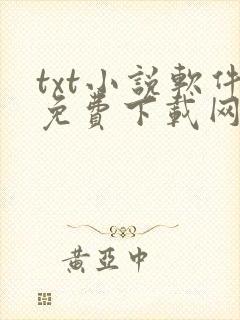 txt小說軟件
免費下載网
黃亞中